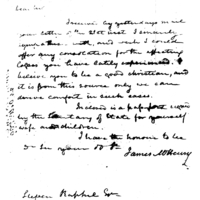 Dear Sir
I received by yesterdays mail
your letter of the 28th inst. I sincerely
with, and wish I could
offer any consolation for the afflicting
losses you have lately experienced. I
believe you to be a good christian, and
it is from this source only we can
derive comfort in such cases.
Inclosed is a passport signed
by the Secretary of State for yourself
wife and children.
I have the honour to be
James McHenry
Stephen Rapphel Esq